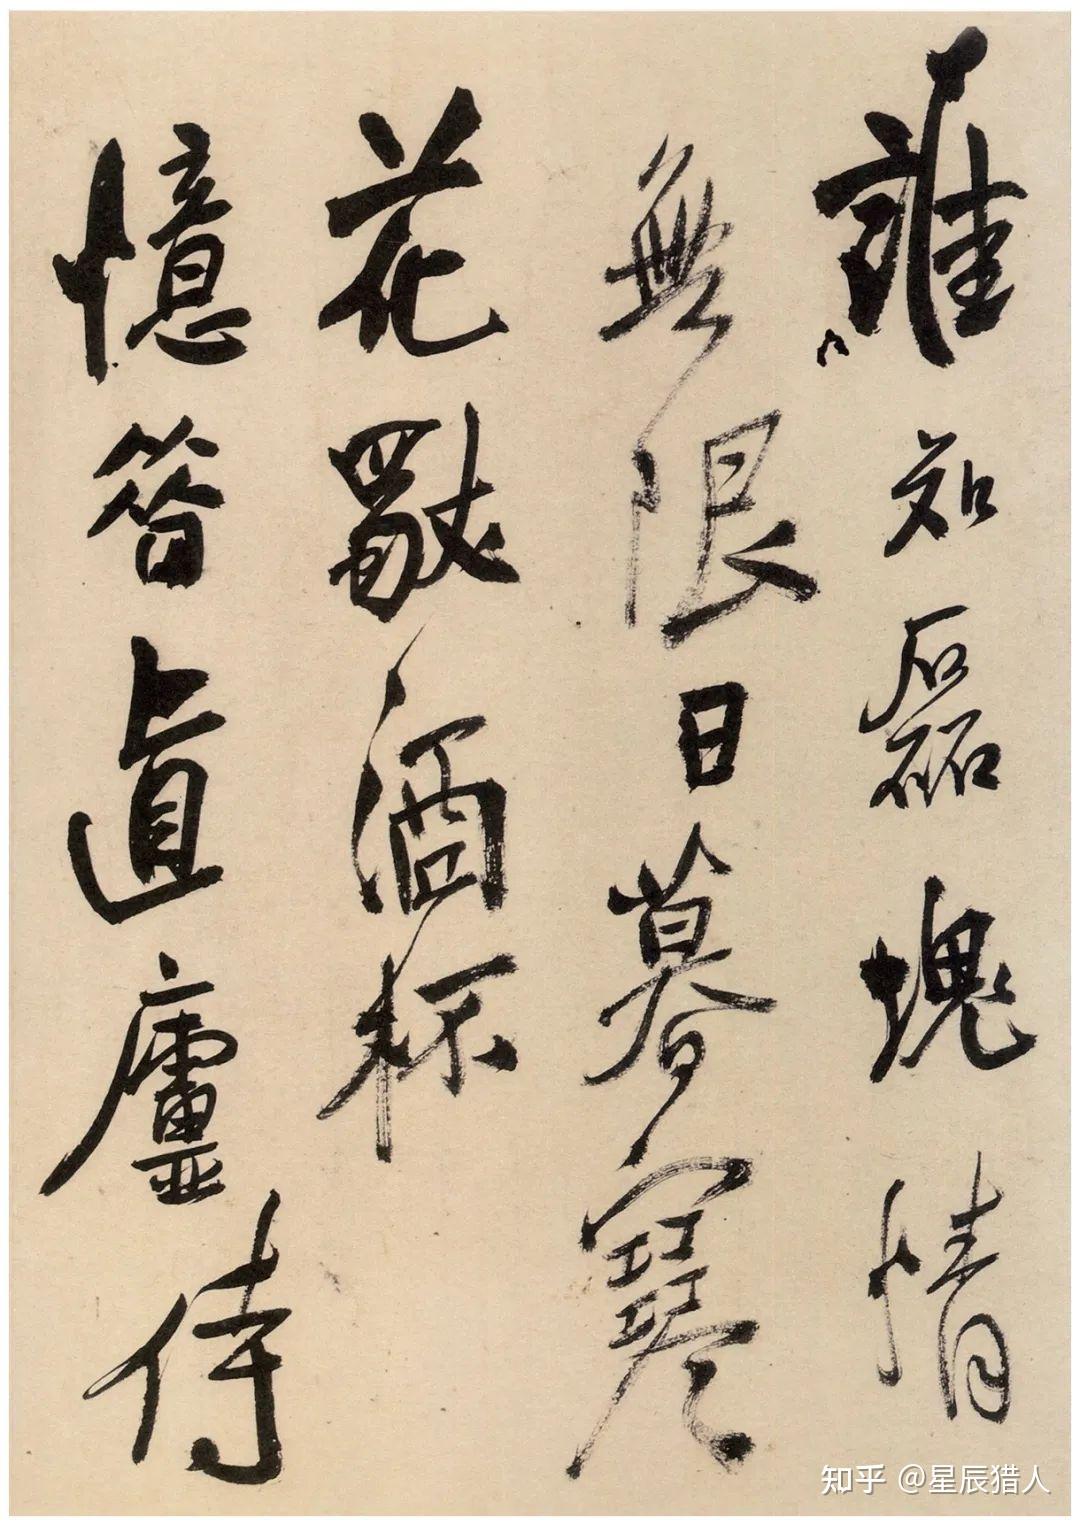 誰知磊塊情
無限日暮寒
花酒杯
憶昔直廬侍
知乎 @星辰猎人